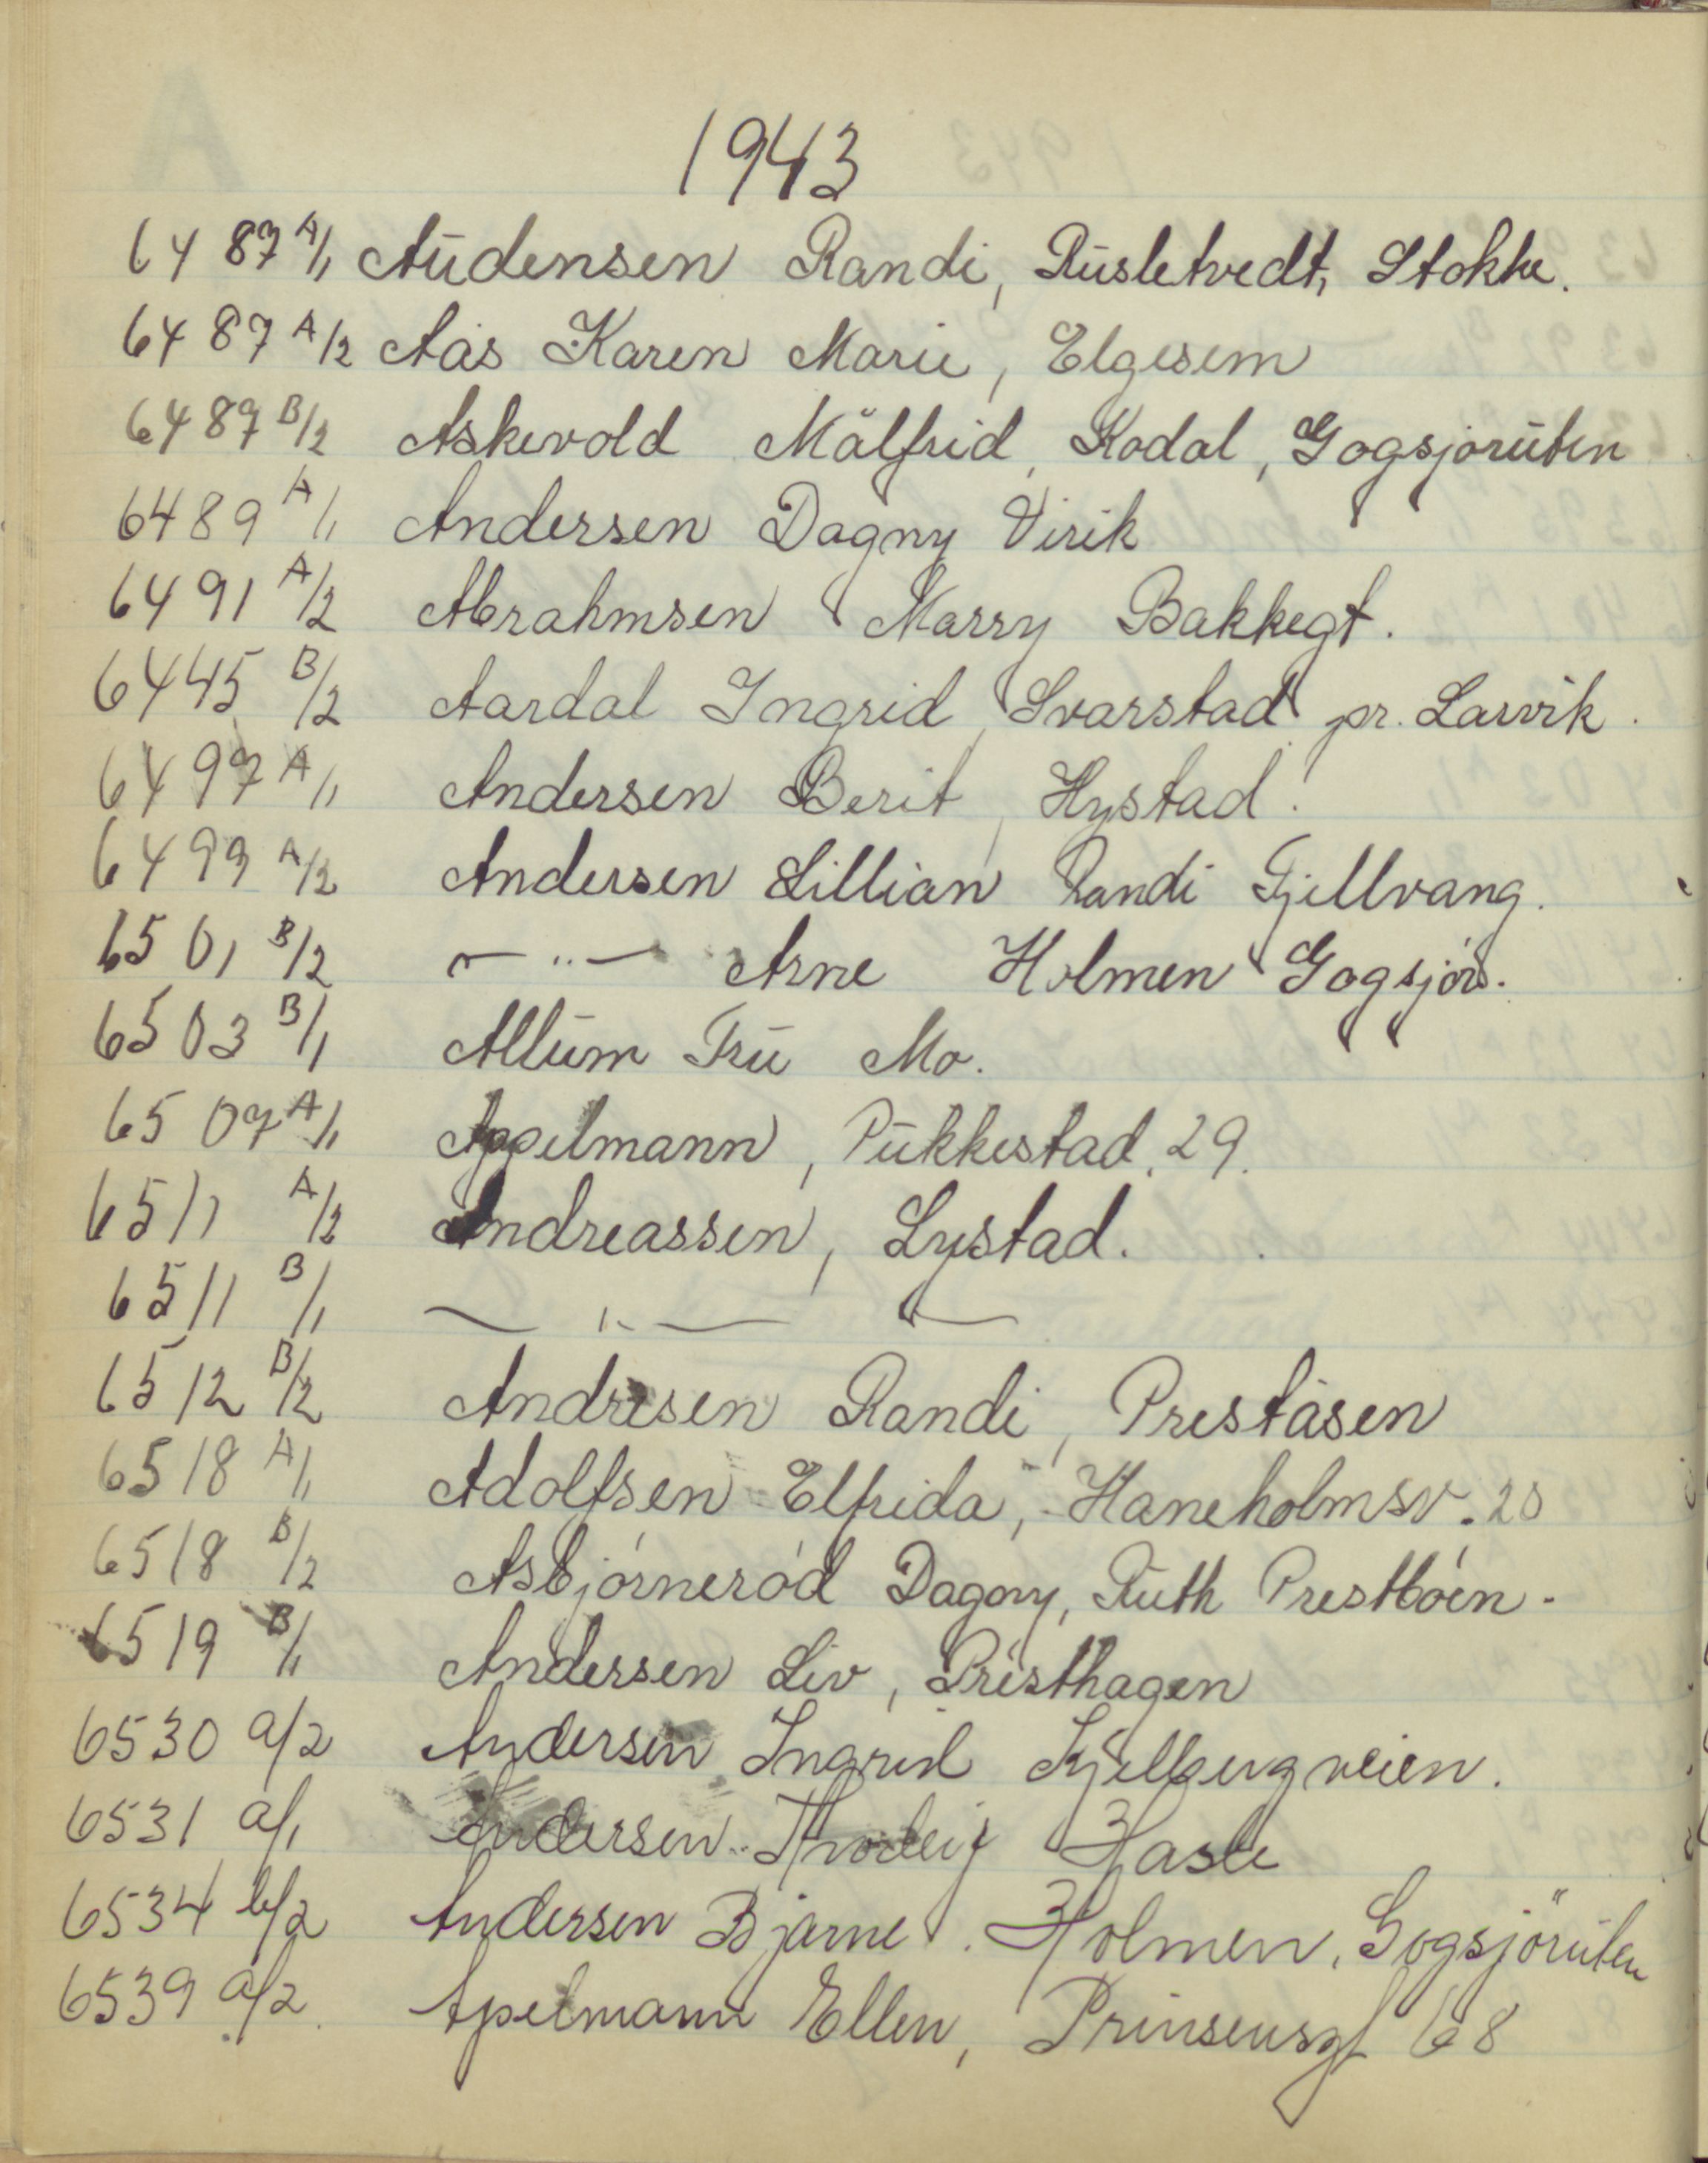 1943
6487 A/1 Audensen Randi, Rusletvedt, Stokke.
6487 A/2 Aas Karen Marie, Elgesem
6487 B/2 Askevold Målfrid, Kodal, Gogsjøruten
6489 A/1 Andersen Dagny Virik
6491 A/2 Abrahmsen Marry Bakkegt.
6445 B/2 Aardal Ingrid, Svarstad pr. Larvik.
6497 A/1 Andersen Berit, Hystad.
6499 A/2 Andersen Lillian Randi Fjellvang.
6501 B/2 — " — Arne Holmen Gogsjør.
6503 B/1 Allum Fru Mo.
6507 A/1 Appelmann, Pukkestad. 29.
6511 A/2 Andreassen, Lystad.
6511 B/1 — " — —
6512 B/2 Andresen Randi, Preståsen
6518 A/1 Adolfsen Elfrida, Haneholmsv. 20
6518 B/2 Asbjørnerød Dagny, Ruth Prestbøen.
6519 B/1 Andersen Liv, Presthagen
6530 a/2 Andersen Ingrid Kjellbergveien.
6531 a/1 Andersen Hasle
6534 b/2 Andersen Bjarne. Holmen, Gogsjøruten
6539 a/2. Apelmann Ellen, Prinsensgt 68